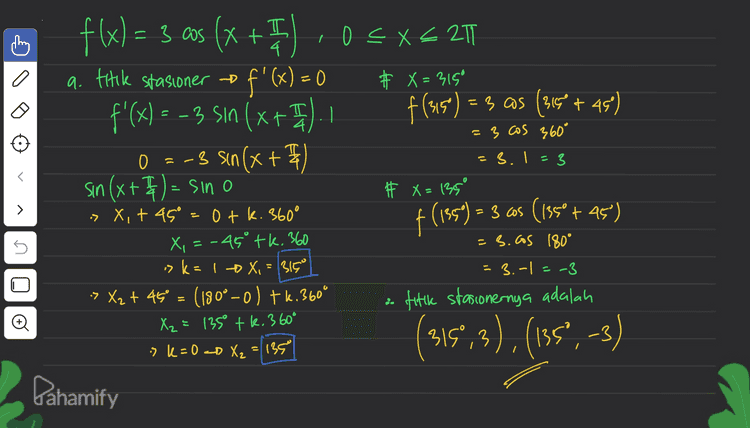 f(x) = 3 cos (x + π/4) , 0 ≤ x ≤ 2π
a. titik stasioner → f'(x) = 0
f'(x) = -3 sin (x + π/4) . 1
0 = -3 sin (x + π/4)
sin (x + π/4) = sin 0
> x₁ + 45° = 0 + k. 360°
x₁ = -45° + k. 360
> k = 1 → x₁ = 315°
> x₂ + 45° = (180° - 0) + k. 360°
x₂ = 135° + k. 360°
> k = 0 → x₂ = 135°
# x = 315°
f (315°) = 3 cos (315° + 45°)
= 3 cos 360°
= 3. 1 = 3
# x = 135°
f (135°) = 3 cos (135° + 45°)
= 3. cos 180°
= 3. -1 = -3
titik stasionernya adalah
(315°, 3) , (135°, -3)
Pahamify